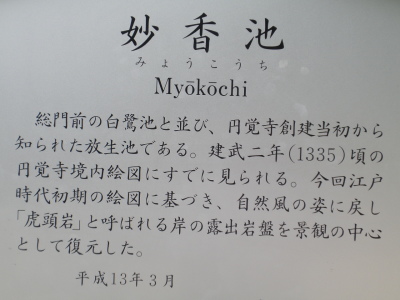 妙香池
みょうこうち
Myōkōchi
総門前の白鷺池と並び、円覚寺創建当初から
知られた放生池である。建武二年(1335)頃の
円覚寺境内絵図にすでに見られる。今回江戸
時代初期の絵図に基づき、自然風の姿に戻し
「虎頭岩」と呼ばれる岸の露出岩盤を景観の中心
として復元した。
平成13年3月